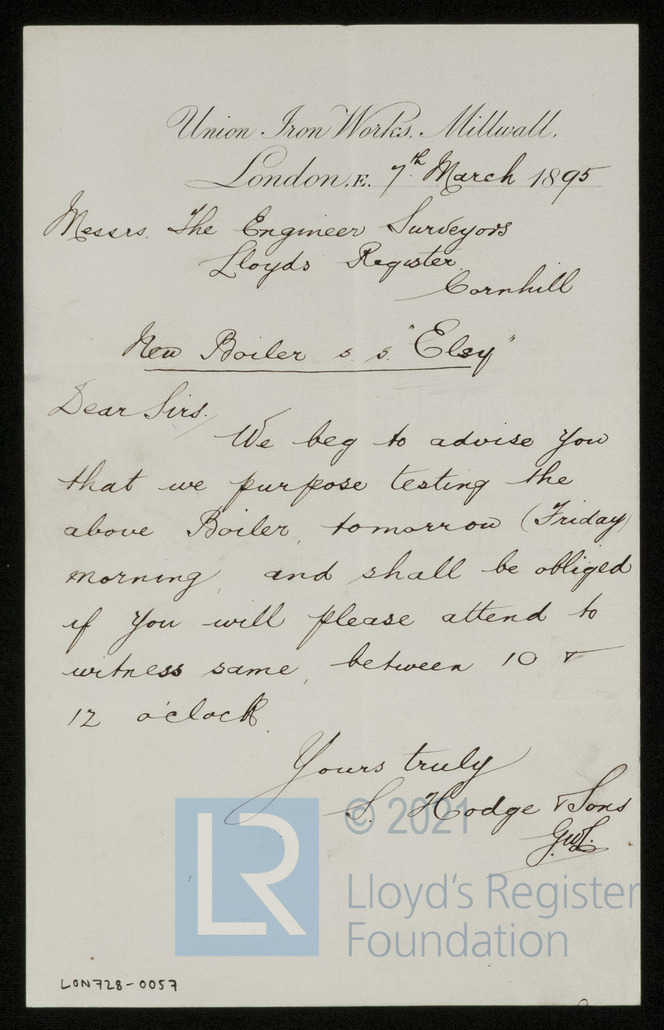 Union Iron Works. Millwall.
London. E. 7th March 1895
Messrs. The Engineer Surveyors
Lloyds Register
Cornhill
New Boiler s. s. "Elsy"
Dear Sirs.
We beg to advise you
that we purpose testing the
above Boiler, tomorrow (Friday)
morning, and shall be obliged
if you will please attend to
witness same, between 10 &
12 o'clock.
Yours truly
S. Hodge & Sons
LR
© 2021
Lloyd's Register
Foundation
LON728-0057